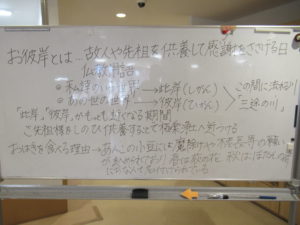 お彼岸とは…故人や先祖を供養して感謝をささげる日
仏教用語
・私達のいる世界→此岸(しがん)
・あの世の世界→彼岸(ひがん)
この間に流れる川
三途の川
「此岸」「彼岸」がもっとも近くなる期間
ご先祖様をしのび供養することで極楽浄土へ近づける
おはぎを食べる理由→あんこの小豆には魔除けや不老長寿の願い
が込められており 春は牡丹の花 秋は